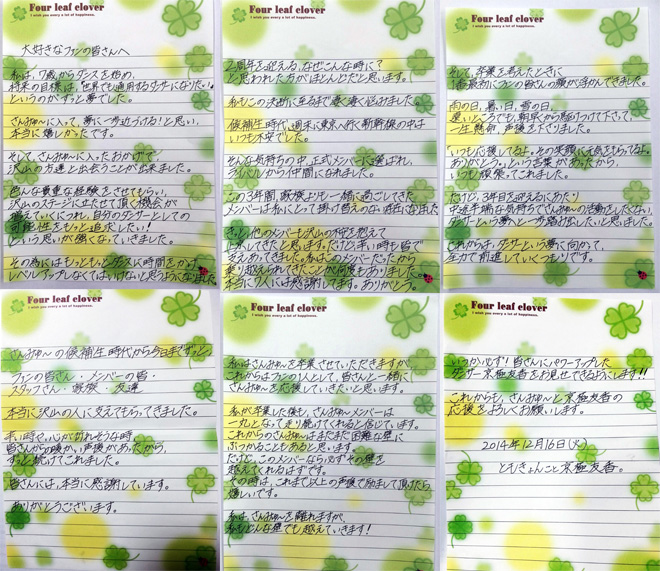 Four leaf clover
I wish you every a lot of happiness.
大好きなファンの皆さんへ
私は、7歳からダンスを始め、
将来の目標は、「世界でも通用するダンサーになりたい」
というのがずっと夢でした。
さんみゅ〜に入って、夢に一歩近づける!と思い、
本当に嬉しかったです。
そして、さんみゅ〜に入ったおかげで、
沢山の方達と出会うことが出来ました。
色んな貴重な経験をさせてもらい、
沢山のステージに立たせて頂く機会が
増えていくにつれ、自分のダンサーとしての
可能性をもっと追求したい!
という思いが強くなっていきました。
その為にはもっともっとダンスに時間をかけ
レベルアップしなくてはいけないと思うようになりました。
Four leaf clover
I wish you every a lot of happiness.
2周年を迎える、なぜこんな時に?
と思われた方がほとんどだと思います。
私もこの決断に至るまで凄く凄く悩みました。
候補生時代、週末に東京へ行く新幹線の中は
いつも不安でした。
そんな気持ちの中、正式メンバーに選ばれ、
ライバルから仲間になれました。
この3年間、家族よりも一緒に過ごしてきた
メンバーは私にとって掛け替えのない存在になりました。
きっと他のメンバーも沢山の不安を抱えて
上京してきたと思います。だけど、辛い時も皆で
支えあってきました。私はこのメンバーだったから
乗り越えられてきたことが何度もありました。
本当に9人には感謝してます。ありがとう。
Four leaf clover
I wish you every a lot of happiness.
そして、卒業を考えたときに
1番最初にファンの皆さんの顔が浮かんできました。
雨の日、暑い日、雪の日、
遠いところでも、朝早くから駆けつけて下さって、
一生懸命、声援を下さりました。
「いつも応援してるよ。その笑顔に元気をもらってるよ。
ありがとう。」という言葉があったから、
いつも頑張ってこれました。
だけど、3年目を迎えるにあたり
中途半端な気持ちでさんみゅ〜の活動をしたくない、
ダンサーという夢へと一歩踏み出したいと思いました。
これからは、ダンサーという夢に向かって、
全力で前進していくつもりです。
Four leaf clover
I wish you every a lot of happiness.
さんみゅ〜の候補生時代から今日まですっと、
ファンの皆さん・メンバーの皆・
スタッフさん・家族・友達
本当に沢山の人に支えてもらってきました。
辛い時や、心が折れそうな時
皆さんからの暖かい声援があったから、
ずっと続けてこれました。
皆さんには、本当に感謝しています。
ありがとうございます。
Four leaf clover
I wish you every a lot of happiness.
私はさんみゅ〜を卒業させていただきますが、
これからはファンの1人として、皆さんと一緒に
さんみゅ〜を応援していきたいと思います。
私が卒業した後も、さんみゅ〜メンバーは
一丸となって走り続けてくれると信じています。
これからのさんみゅ〜はまだまだ困難な壁に
ぶつかることもあると思います。
だけど、このメンバーなら必ずその壁を
越えてくれるはずです。
その時は、これまで以上の声援で励まして頂けたら
嬉しいです。
私は、さんみゅ〜を離れますが、
私もどんな壁でも越えていきます!
Four leaf clover
I wish you every a lot of happiness.
いつか必ず!皆さんにパワーアップした
ダンサー京極友香をお見せできるようにします!!
これからも、さんみゅ〜と京極友香の
応援をよろしくお願いします。
2014年12月16日(火)
ともきょんこと京極友香。